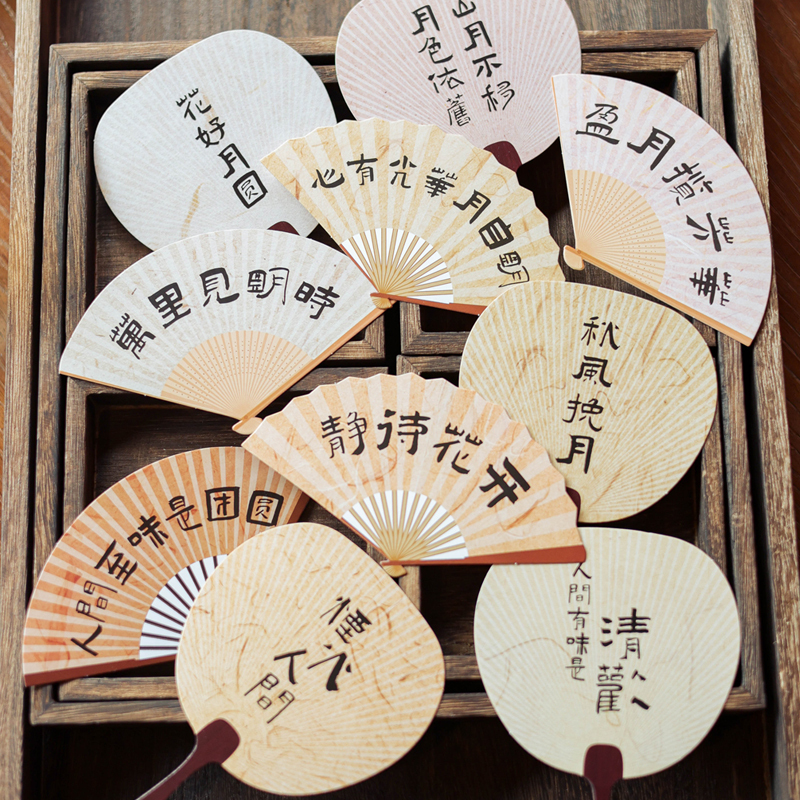 花好月圆
山月不移
月色依舊
盈月華
心有光華月自明
萬里見明時
秋風挽月
静待花开
人間至味是团圆
煙火
人間
人間有味是
清歡